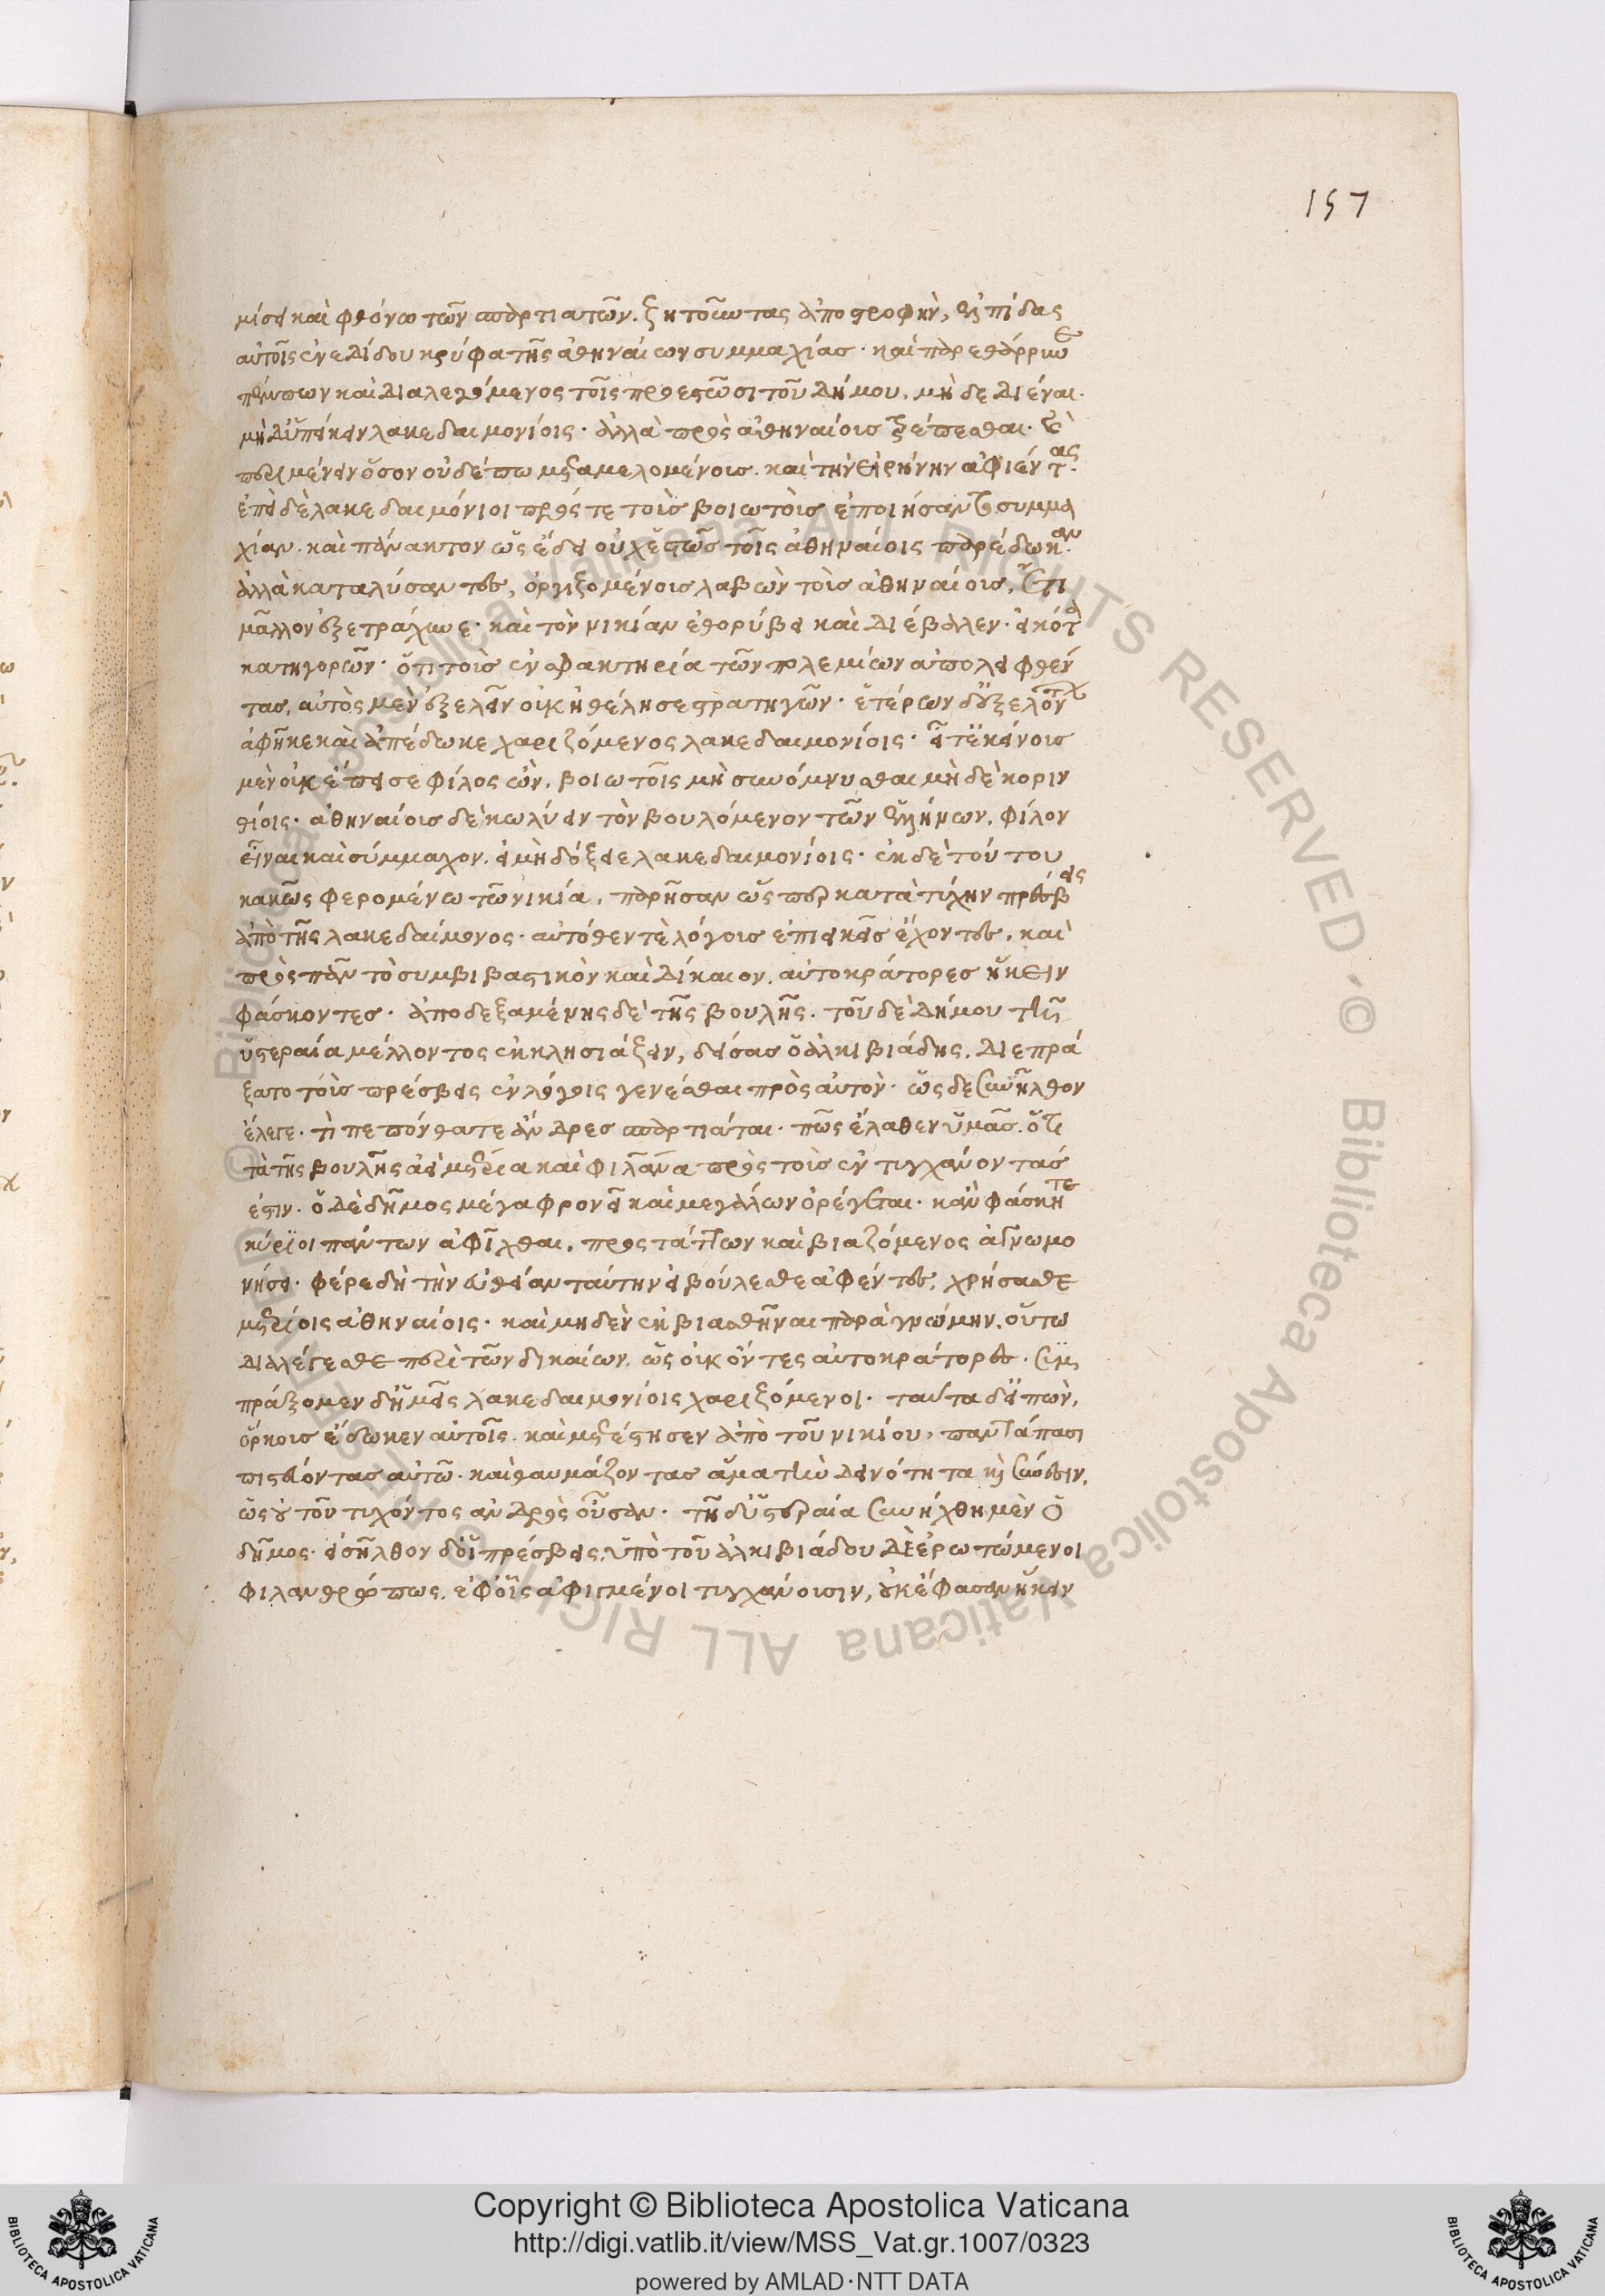 157
μίσει καὶ φθόνω τῶν σπαρτιατῶν. ζητοῦντας ἀποστροφὴν, ἐλπίδας
αὐτοῖς ἐνεδίδου κρύφα τῆς ἀθηναίων συμμαχίας· καὶ παρεθάρρυνε
πέμπων καὶ διαλεγόμενος τοῖς προεστῶσι τοῦ δήμου, μὴ δεδιέναι.
μηδ' ὑπείκειν λακεδαιμονίοις· ἀλλὰ πρὸς ἀθηναίους τρέπεσθαι· καὶ
περιμένειν ὅσον οὐδέπω μεταμελομένους. καὶ τὴν εἰρήνην ἀφιέντας.
ἐπεὶ δὲ λακεδαιμόνιοι πρός τε τοὺς βοιωτοὺς ἐποιήσαντο συμμα
χίαν. καὶ πάνακτον ὡς ἔδει οὐχ ἑστὼς τοῖς ἀθηναίοις παρέδωκαν.
ἀλλὰ καταλύσαντες, ὀργιζομένους λαβὼν τοὺς ἀθηναίους, ἔτι
μᾶλλον ἐξετράχυνε· καὶ τὸν νικίαν ἐθορύβει καὶ διέβαλεν· εἰκότα
κατηγορῶν· ὅτι τοὺς ἐν σφακτηρία τῶν πολεμίων ἀπολειφθέν
τας, αὐτὸς μὲν ἐξελεῖν οὐκ ἠθέλησε στρατηγῶν· ἑτέρων δ' ἐξελόντων
ἀφῆκε καὶ ἀπέδωκε χαριζόμενος λακεδαιμονίοις· εἶτ' ἐκείνους
μὲν οὐκ ἔπεισε φίλος ὢν, βοιωτοῖς μὴ συνόμνυσθαι μὴ δὲ κοριν
θίοις· ἀθηναίους δὲ κωλύειν τὸν βουλόμενον τῶν ἑλλήνων, φίλον
εἶναι καὶ σύμμαχον, εἰ μὴ δόξειε λακεδαιμονίοις· ἐκ δὲ τούτου
κακῶς φερομένω τῶ νικία, παρῆσαν ὥσπερ κατὰ τύχην πρέσβεις
ἀπὸ τῆς λακεδαίμονος· αὐτόθεν τὲ λόγους ἐπιεικεῖς ἔχοντες, καὶ
πρὸς πᾶν τὸ συμβιβαστικὸν καὶ δίκαιον, αὐτοκράτορες ἥκειν
φάσκοντες· ἀποδεξαμένης δὲ τῆς βουλῆς. τοῦ δὲ δήμου τῆ
ὑστεραία μέλλοντος ἐκκλησιάζειν, δείσας ὁ ἀλκιβιάδης, διεπρά
ξατο τοὺς πρέσβεις ἐν λόγοις γενέσθαι πρὸς αὐτὸν· ὡς δὲ συνῆλθον
ἔλεγε· τὶ πεπόνθατε ἄνδρες σπαρτιάται· πῶς ἔλαθεν ὑμᾶς. ὅτι
τὰ τῆς βουλῆς ἀεὶ μέτρια καὶ φιλάνα πρὸς τοὺς ἐντυγχάνοντάς
ἐστιν· ὁ δὲ δῆμος μέγα φρονεῖ καὶ μεγάλων ὀρέγεται· κἂν φάσκητε
κύριοι πάντων ἀφῖχθαι, προστάττων καὶ βιαζόμενος ἀγνωμο
νήσει· φέρε δὴ τὴν εὐήθειαν ταύτην εἰ βούλεσθε ἀφέντες, χρήσασθε
μετρίοις ἀθηναίοις· καὶ μηδὲν ἐκβιασθῆναι παρὰ γνώμην, οὕτω
διαλέγεσθε περὶ τῶν δικαίων, ὡς οὐκ ὄντες αὐτοκράτορες· συμ
πράξομεν δ' ἡμεῖς λακεδαιμονίοις χαριζόμενοι· ταῦτα δ' εἰπὼν,
ὅρκους ἔδωκεν αὐτοῖς. καὶ μετέστησεν ἀπὸ τοῦ νικίου, παντάπασι
πιστεύοντας αὐτῶ· καὶ θαυμάζοντας ἅμα τὴν δεινότητα καὶ σύνεσιν,
ὡς οὐ τοῦ τυχόντος ἀνδρὸς οὖσαν· τῆ δ' ὑστεραία συνήχθη μὲν ὁ
δῆμος· εἰσῆλθον δ' οἱ πρέσβεις, ὑπὸ τοῦ ἀλκιβιάδου δὲ ἐρωτώμενοι
φιλανθρώπως, ἐφ' οἷς ἀφιγμένοι τυγχάνουσιν, οὐκ ἔφασαν ἥκειν
Copyright © Biblioteca Apostolica Vaticana
http://digi.vatlib.it/view/MSS_Vat.gr.1007/0323
powered by AMLAD·NTT DATA
BIBLIOTECA APOSTOLICA VATICANA
BIBLIOTECA APOSTOLICA VATICANA
© Biblioteca Apostolica Vaticana ALL RIGHTS RESERVED
© Biblioteca Apostolica Vaticana ALL RIGHTS RESERVED